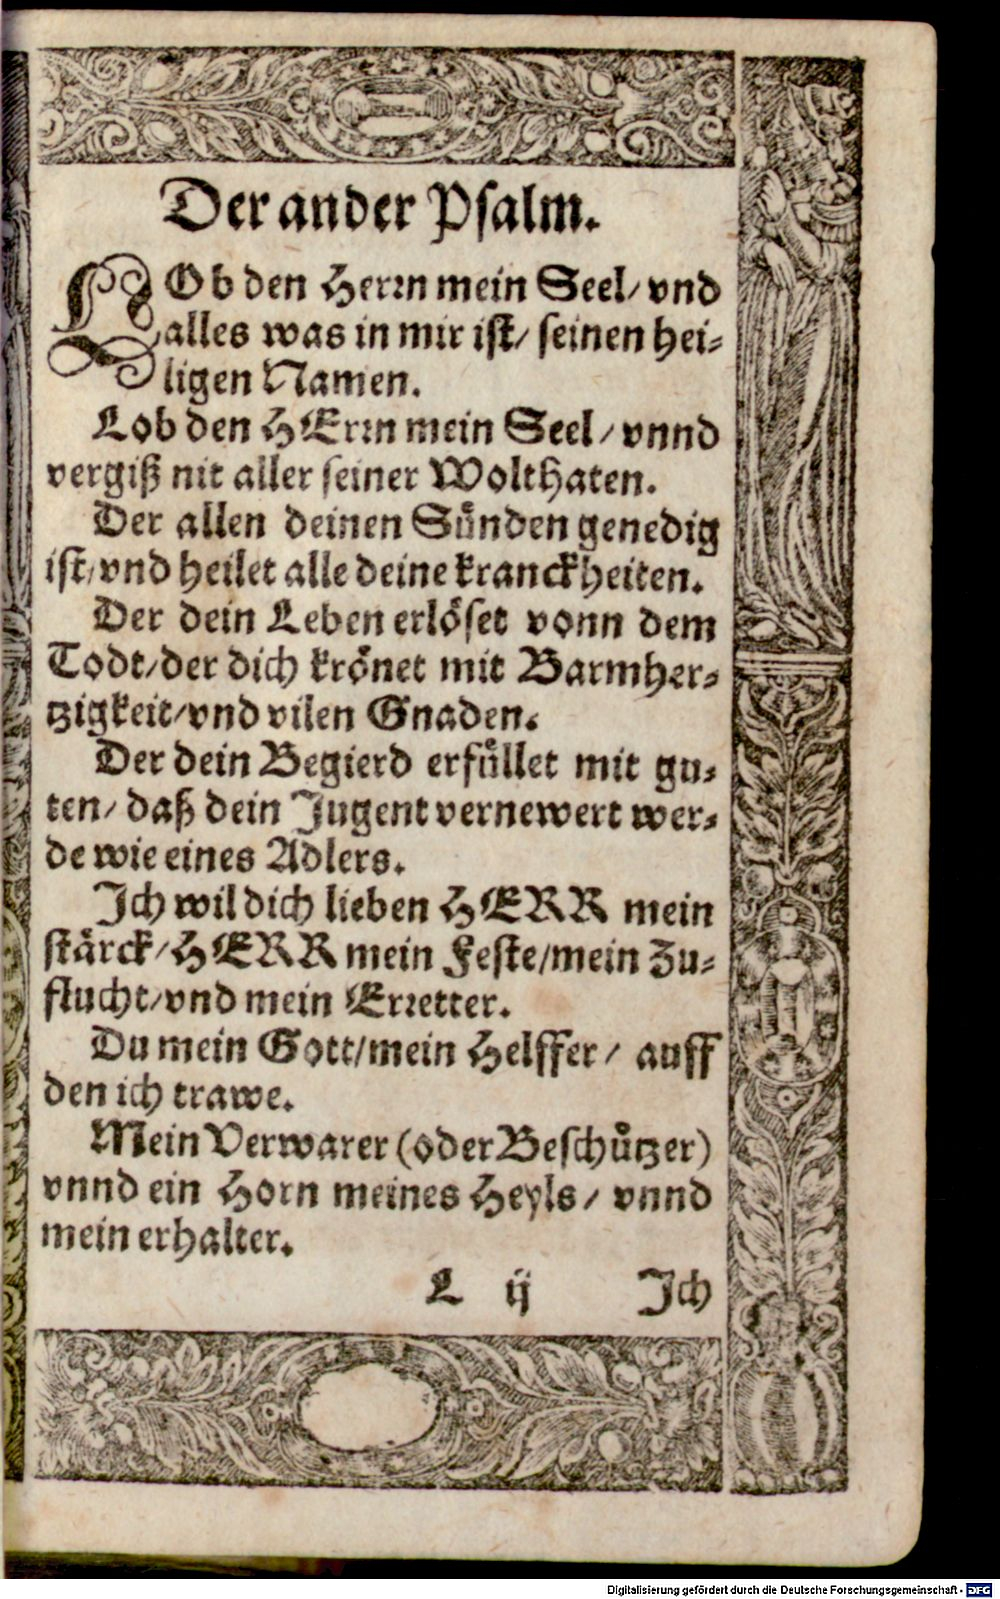 Der ander Psalm.
LOb den Herrn mein Seel/ vnd
alles was in mir ist/ seinen hei-
ligen Namen.
Lob den HErrn mein Seel/ vnnd
vergiß nit aller seiner Wolthaten.
Der allen deinen Sünden genedig
ist/ vnd heilet alle deine kranckheiten.
Der dein Leben erlöset vonn dem
Todt/ der dich krönet mit Barmher-
tzigkeit/ vnd vilen Gnaden.
Der dein Begierd erfüllet mit gu-
ten/ daß dein Jugent vernewert wer-
de wie eines Adlers.
Ich wil dich lieben HERR mein
stärck/ HERR mein Feste/ mein Zu-
flucht/ vnd mein Erretter.
Du mein Gott/ mein Helffer/ auff
den ich trawe.
Mein Verwarer (oder Beschützer)
vnnd ein Horn meines Heyls/ vnnd
mein erhalter.
L ij Ich
Digitalisierung gefördert durch die Deutsche Forschungsgemeinschaft - DFG